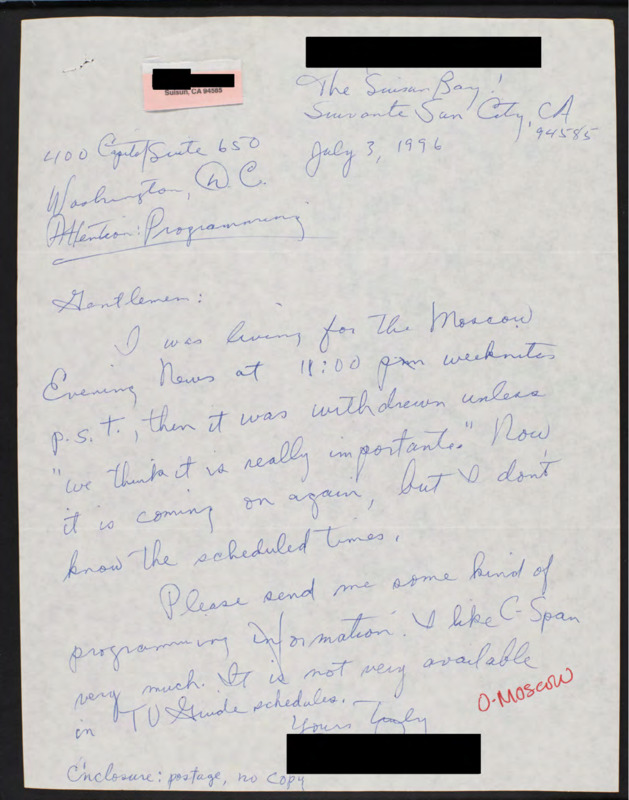 Suisun, CA 94585
The "Suisun Bay"!
Sun City, CA
94585
July 3, 1996
400 Capitol/Suite 650
Washington, D.C.
Attention: Programming
Gentlemen:
I was living for the Moscow
Evening News at 11:00 pm weeknites
p.s.t., then it was withdrewn unless
"we think it is really importante." Now
it is coming on again, but I don't
know the scheduled times.
Please send me some kind of
programming information. I like C-Span
very much. It is not very available
in TV Guide schedules.
Yours Truly
O-Moscow
Enclosure: postage, no copy